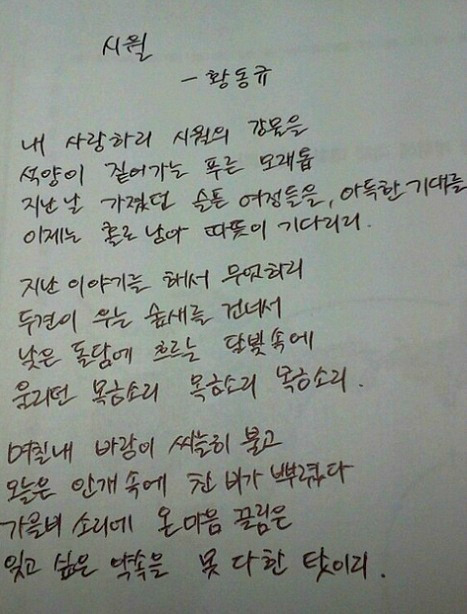 시월
- 황동규
내 사랑하리 시월의 강물을
석양이 짙어가는 푸른 모래톱
지난날 가졌던 슬픈 여정들을, 아득한 기대를
이제는 홀로 남아 따뜻이 기다리리.
지난 이야기를 해서 무엇하리
두견이 우는 숲새를 건너서
낮은 돌담에 흐르는 달빛 속에
울리던 목금소리 목금소리 목금소리.
며칠내 바람이 싸늘히 불고
오늘은 안개 속에 찬 비가 뿌렸다
가을비 소리에 온 마음 끌림은
잊고 싶은 약속을 못 다한 탓이리.